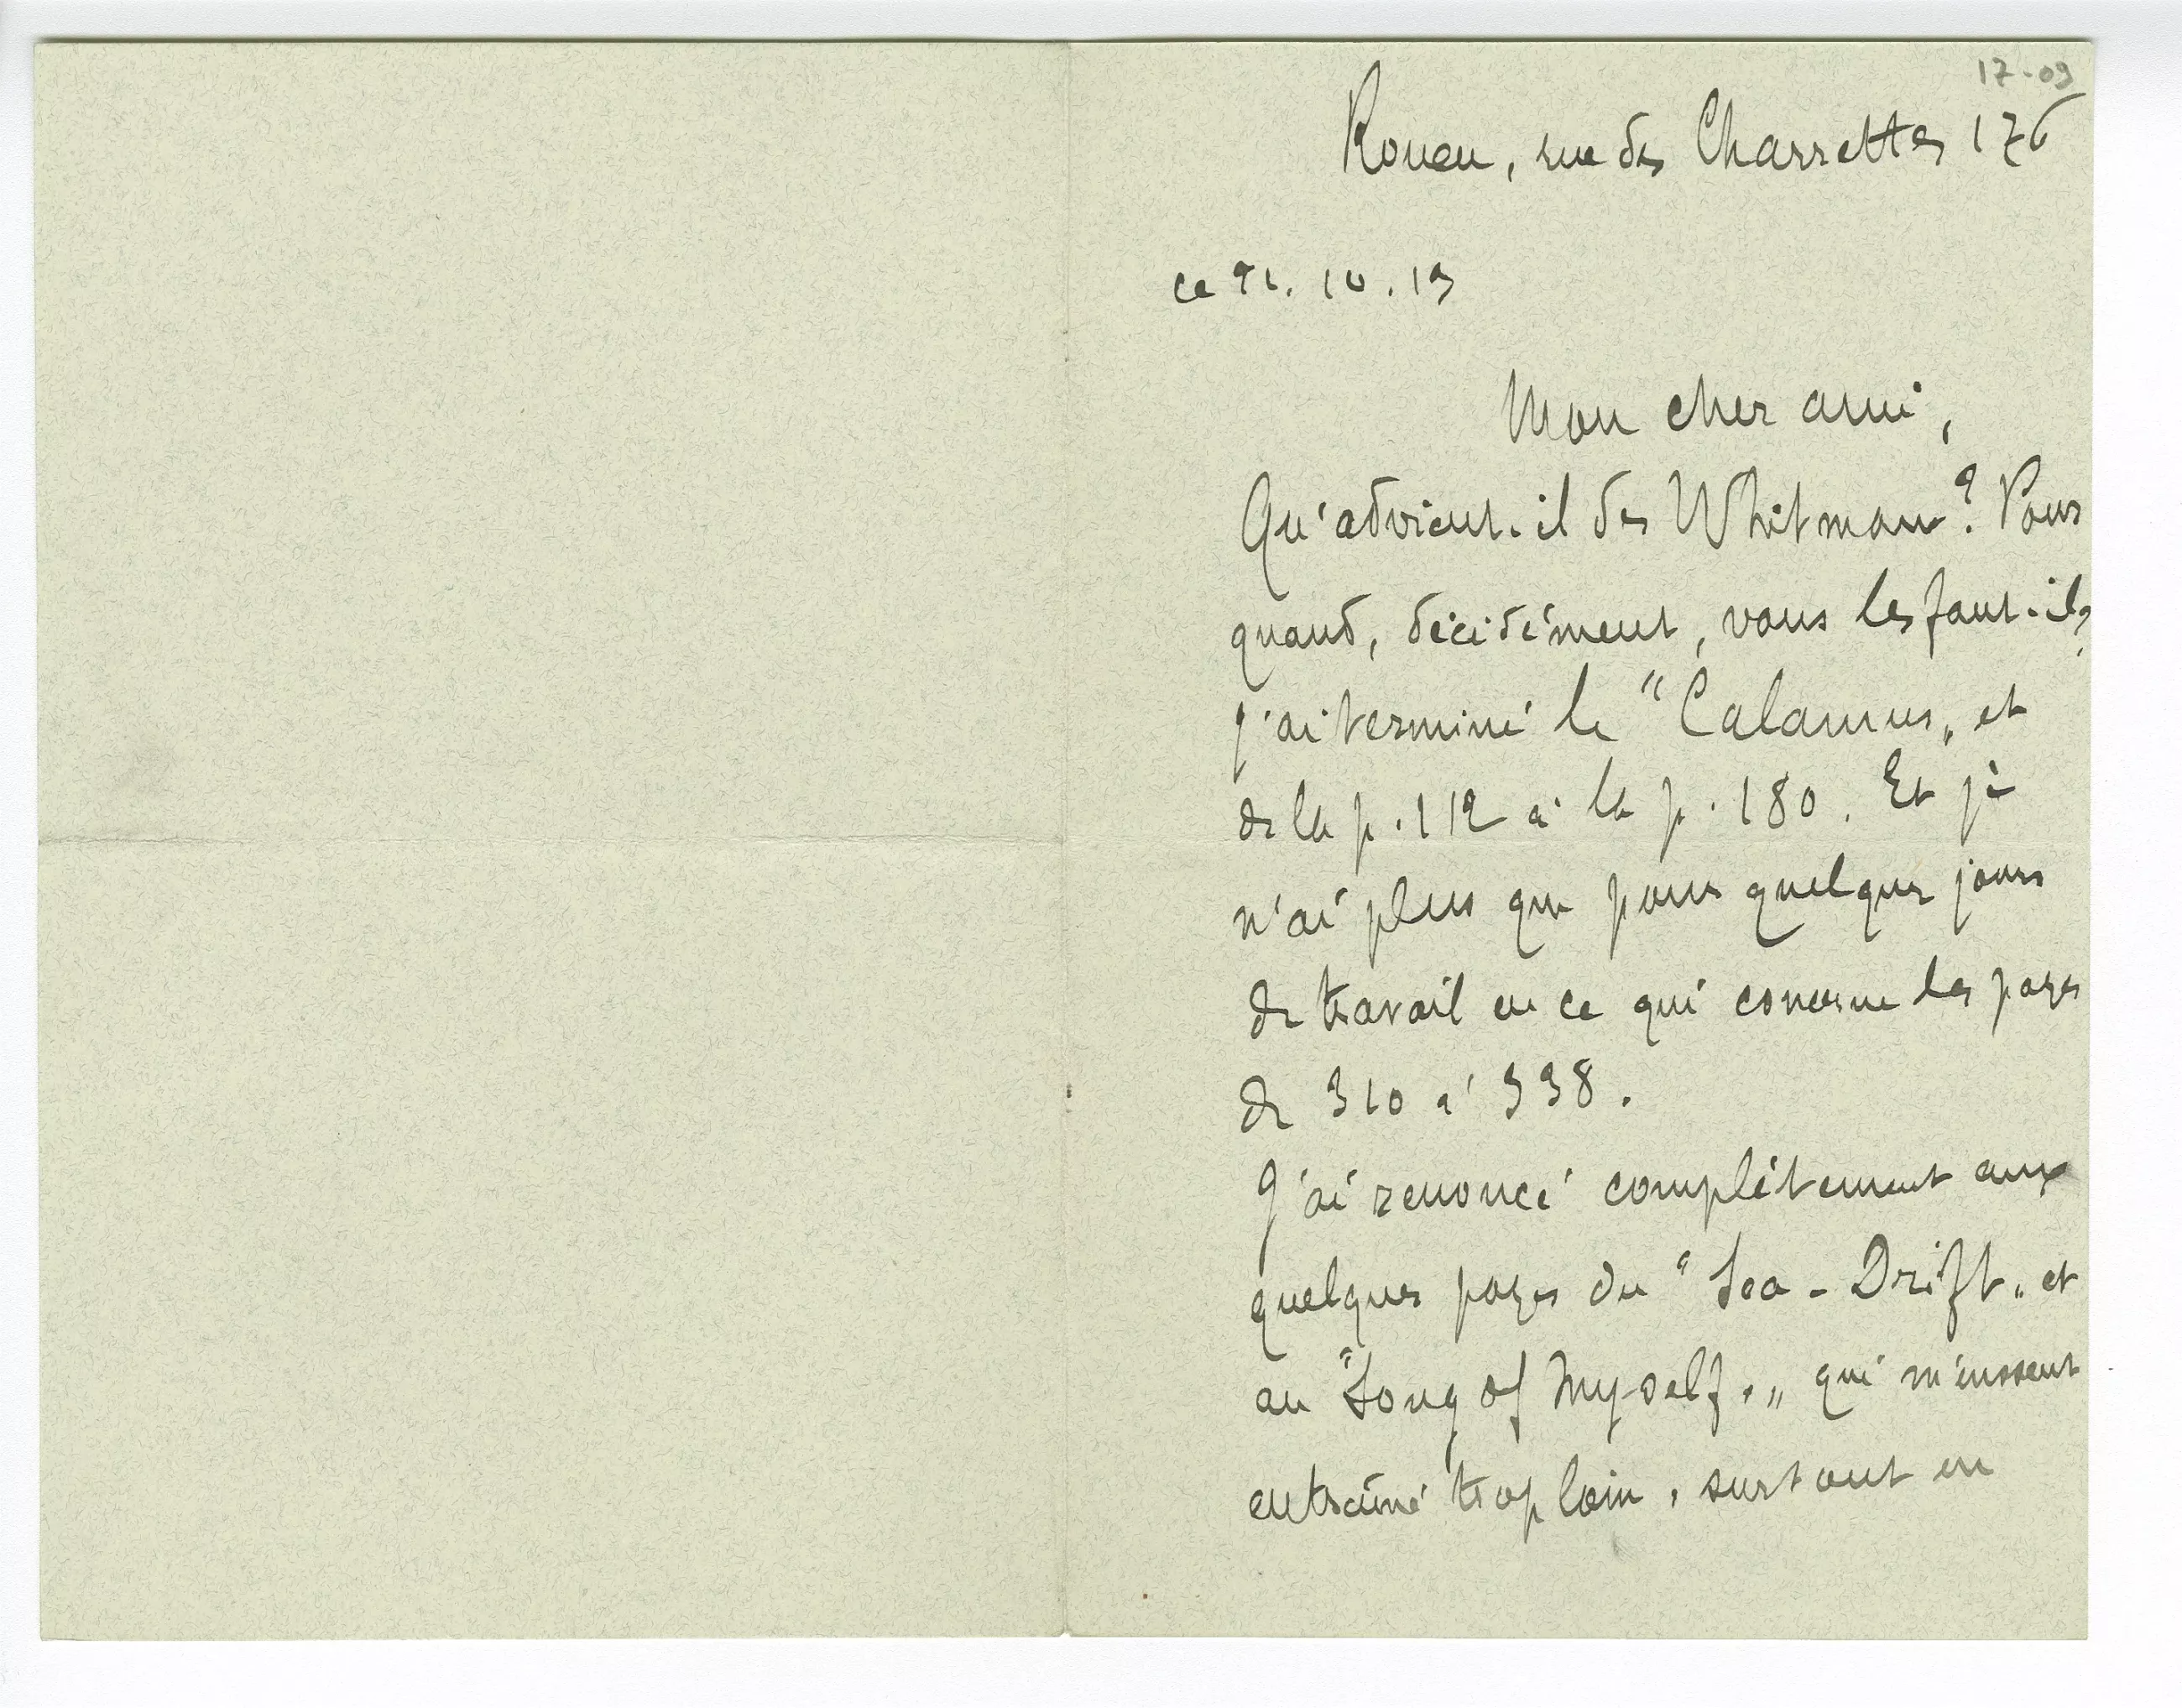 17-09
Rouen, rue des Charrettes 176
ce . 10 . 13
Mon cher ami,
Qu'advient-il des Whitman? Pour
quand, décidément, vous les faut-il?
J'ai terminé le "Calamus„ et
de la p. 112 à la p. 180. Et je
n'ai plus que pour quelques jours
de travail en ce qui concerne les pages
de 310 à 338.
J'ai renoncé complètement aux
quelques pages du "Sea-Drift„ et
au "Song of Myself.„ qui m'eussent
entraîné trop loin, surtout en